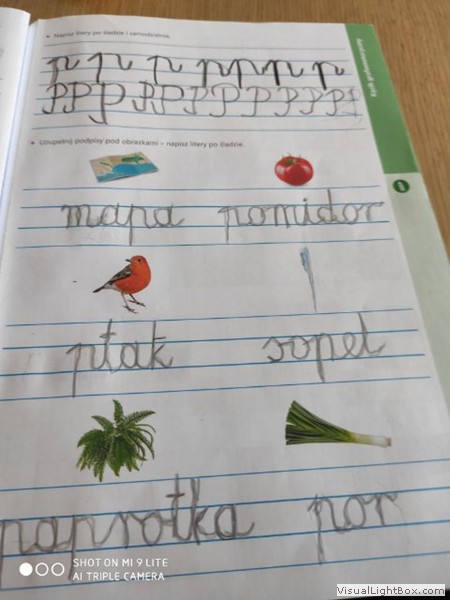 • Napisz litery po śladzie i samodzielnie.
p p p p p p p
• Uzupełnij podpisy pod obrazkami – napisz litery po śladzie.
mapa pomidor
ptak sopel
paprotka por
SHOT ON MI 9 LITE
AI TRIPLE CAMERA
VisualLightBox.com